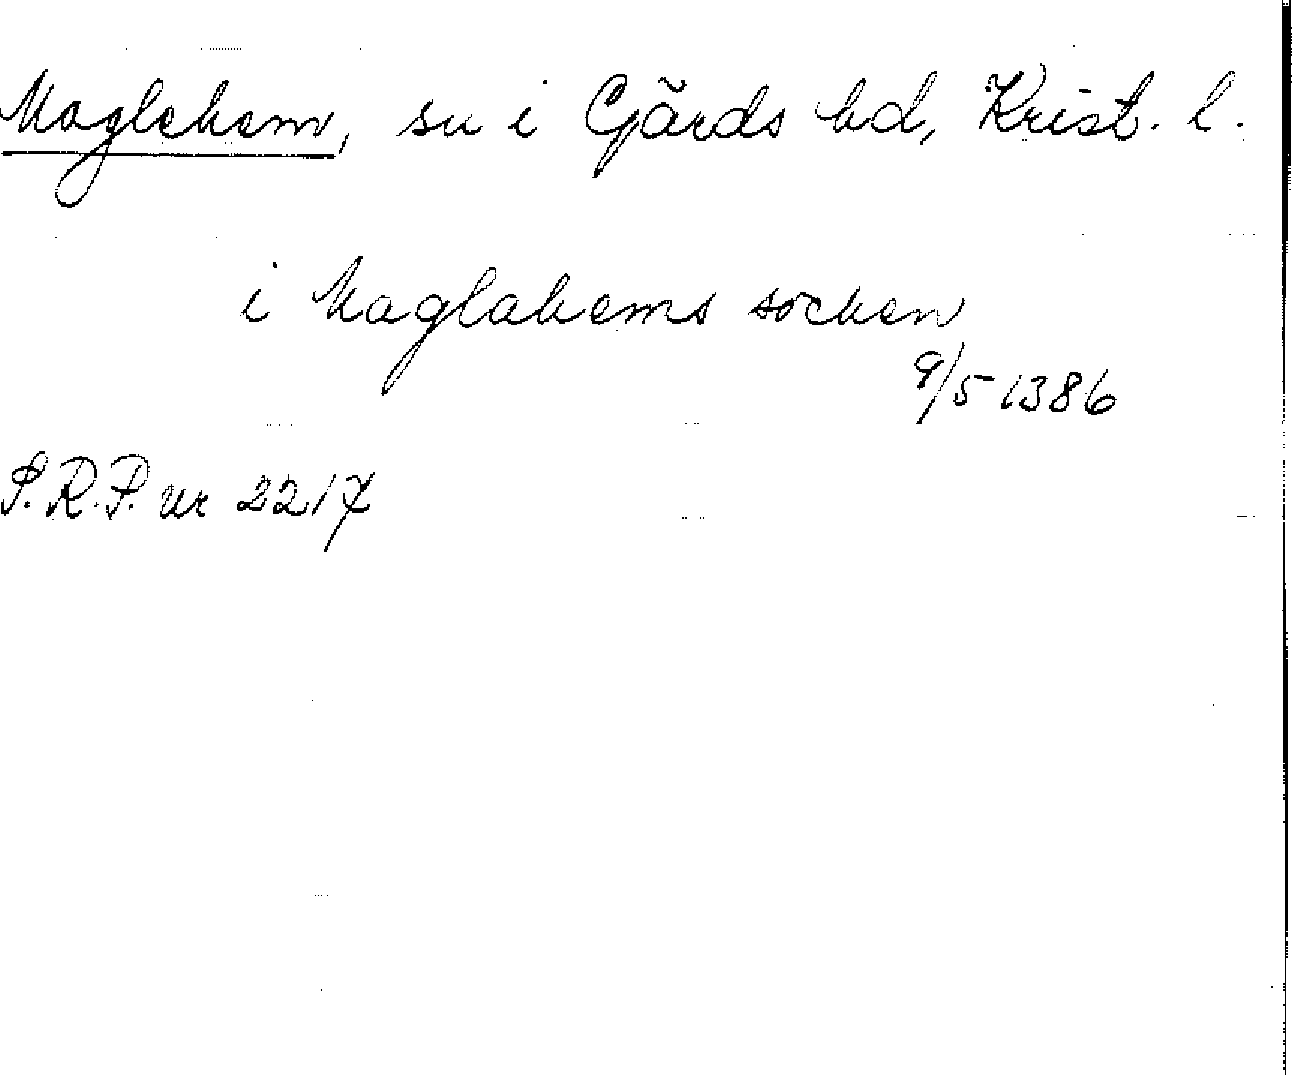 Maglehem, sn i Gärds hd, Krist. l.
i Maglahems socken
9/5 1386
S.R.P. nr 2217